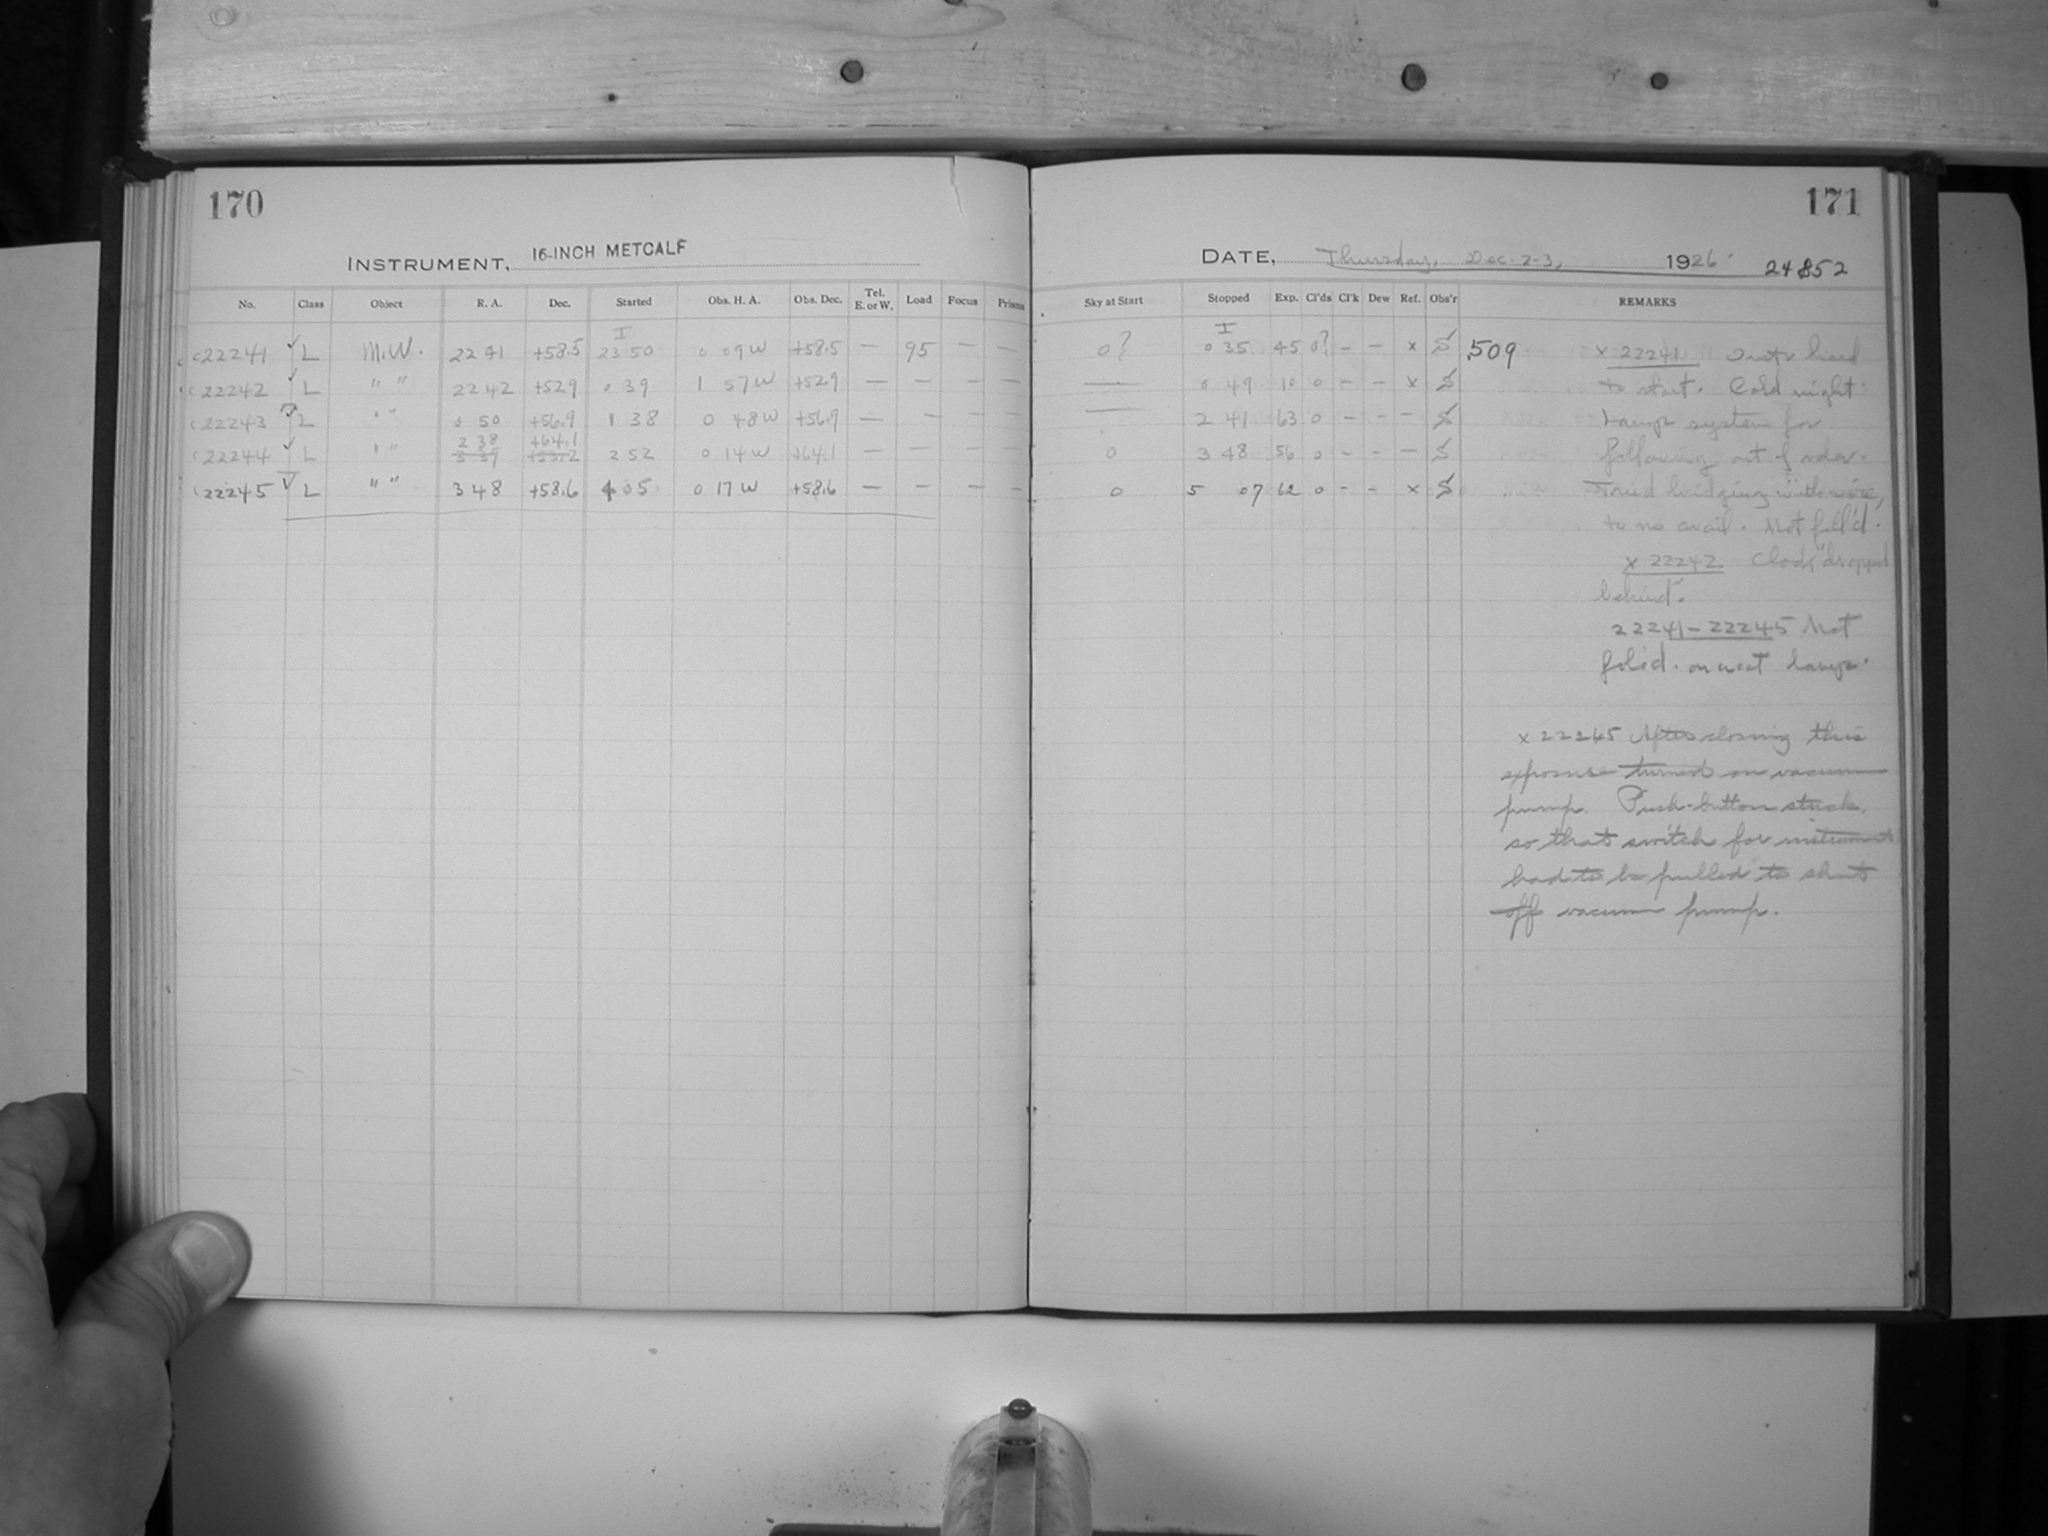 170
INSTRUMENT, 16-INCH METCALF
No. Class Object R. A. Dec. Started Obs. H. A. Obs. Dec. Tel. E. or W. Load Focus Prisms
I
c22241 ✓ L M.W. 22 41 +58.5 23 50 0 09 W +58.5 — 95 — —
c22242 ✓ L " " 22 42 +52.9 0 39 1 57 W +52.9 — — — —
c22243 L " " 0 50 +56.9 1 38 0 48 W +56.9 — — — —
2 38 +64.1
c22244 ✓ L " " 2 52 0 14 W +64.1 — — — —
c22245 L " " 3 48 +58.6 4 05 0 17 W +58.6 — — — —
171
DATE, Thursday, Dec. 2-3, 1926. 24852
Sky at Start Stopped Exp. Cl'ds Cl'k Dew Ref. Obs'r REMARKS
I
0? 0 35 45 0? - - x S .509 x 22241 hard
— 0 49 10 0 - - x S to start. Cold night
— 2 41 63 0 - - - S Lamp system for
0 3 48 56 0 - - - S following out of order.
0 5 07 62 0 - - x S Tried bridging with wire,
to no avail. Not foll'd.
x 22242 Clock "dropped
behind".
22241-22245 Not
fol'd. on west lamp.
x 22245 After closing this
exposure turned on vacuum
pump. Push-button stuck,
so that switch for instrument
had to be pulled to shut
off vacuum pump.